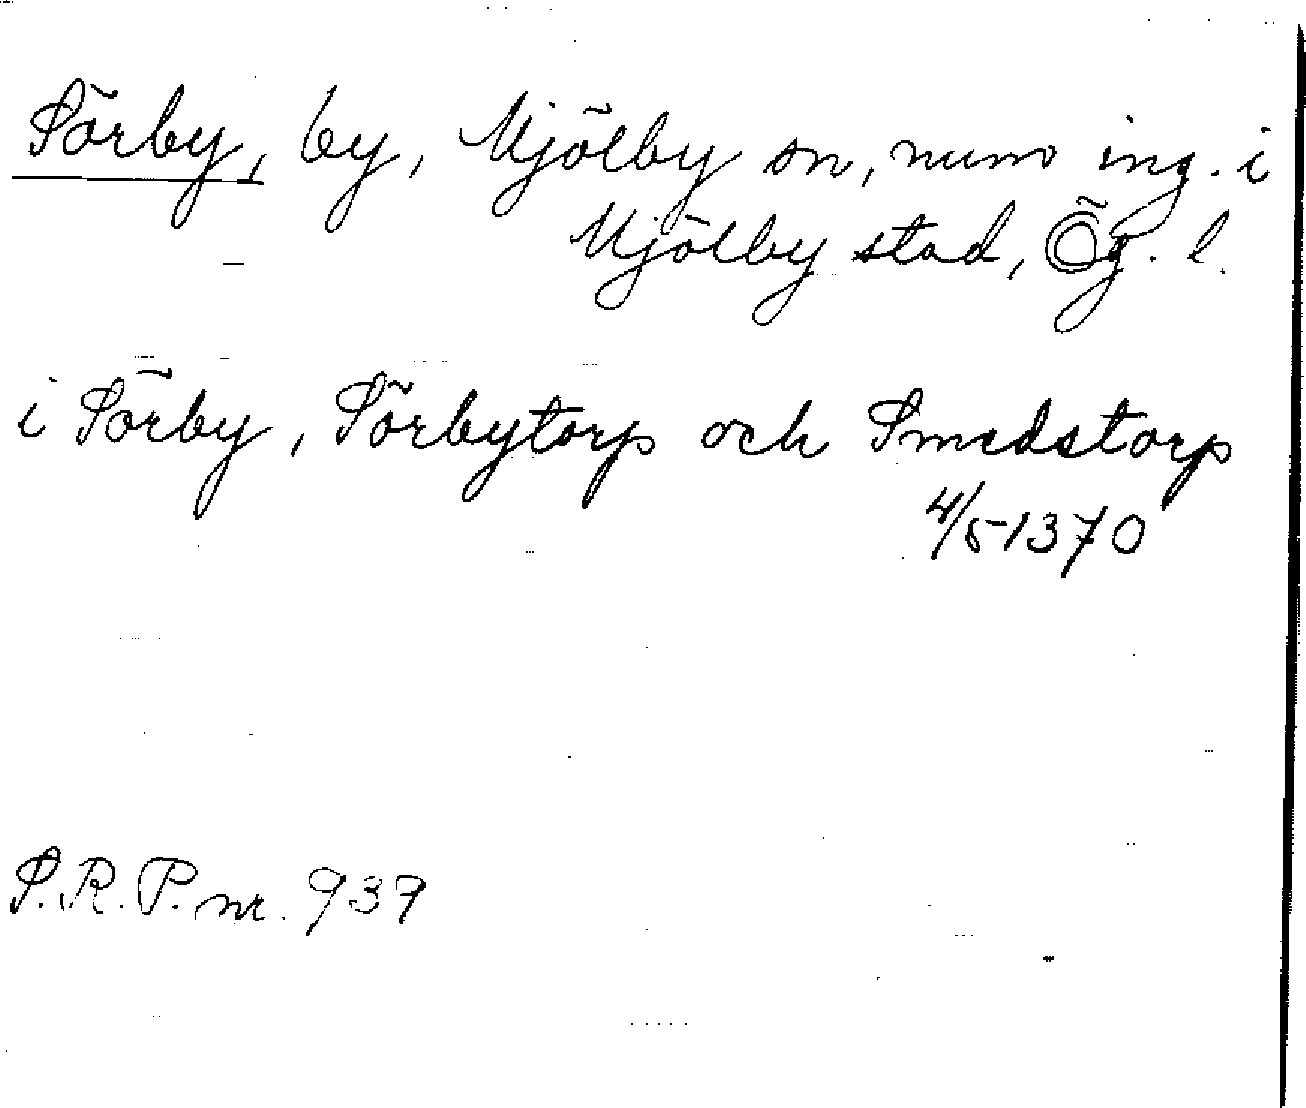 Sörby, by, Mjölby sn, numo ing. i
Mjölby stad, Ög. l.
i Sörby, Sörbytorp och Smedstorp
4/5 1370
S.R.P. nr. 939